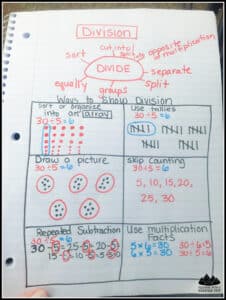 Division
cut into
opposite of
multiplication
sort
DIVIDE
separate
equally
groups
split
Ways to Show Division
Sort or organize
into an array
30÷5=6
Use tallies
30÷5=6
Draw a picture
30÷5=6
Skip counting
30÷5=6
5, 10, 15, 20,
25, 30
Repeated Subtraction
30÷5=6
30-5=25-5=20-5=
15-5=10-5=5-5=0
Use multiplication
Facts
5×6=30
30÷6=5
6×5=30
30÷5=6